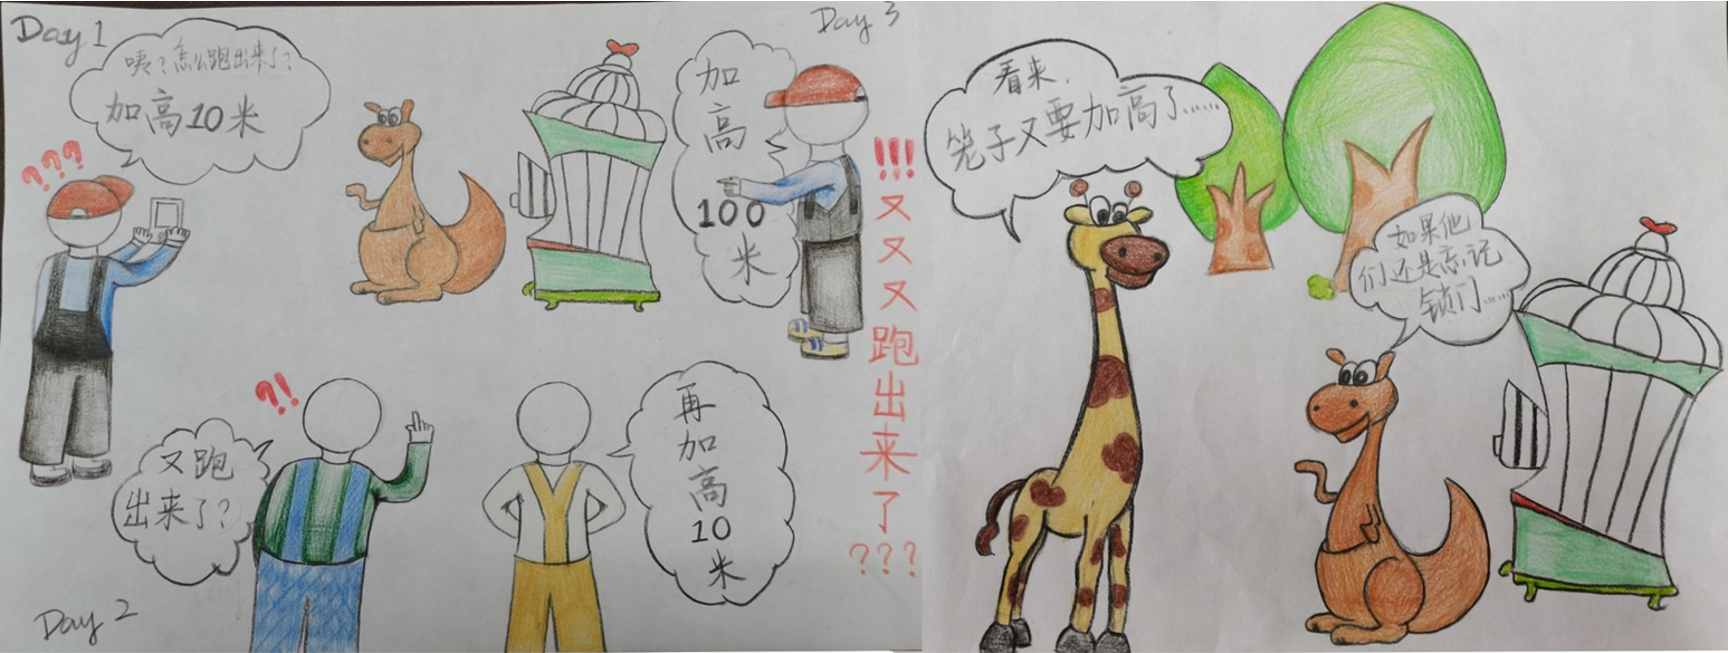 Day 1
咦?怎么跑出来了?
加高10米
???
Day 2
?!
又跑
出来了?
再
加
高
10
米
Day 3
加
高
100
米
!!!
又
又
又
跑
出
来
了
???
看来,
笼子又要加高了……
如果他
们还是忘记
锁门……